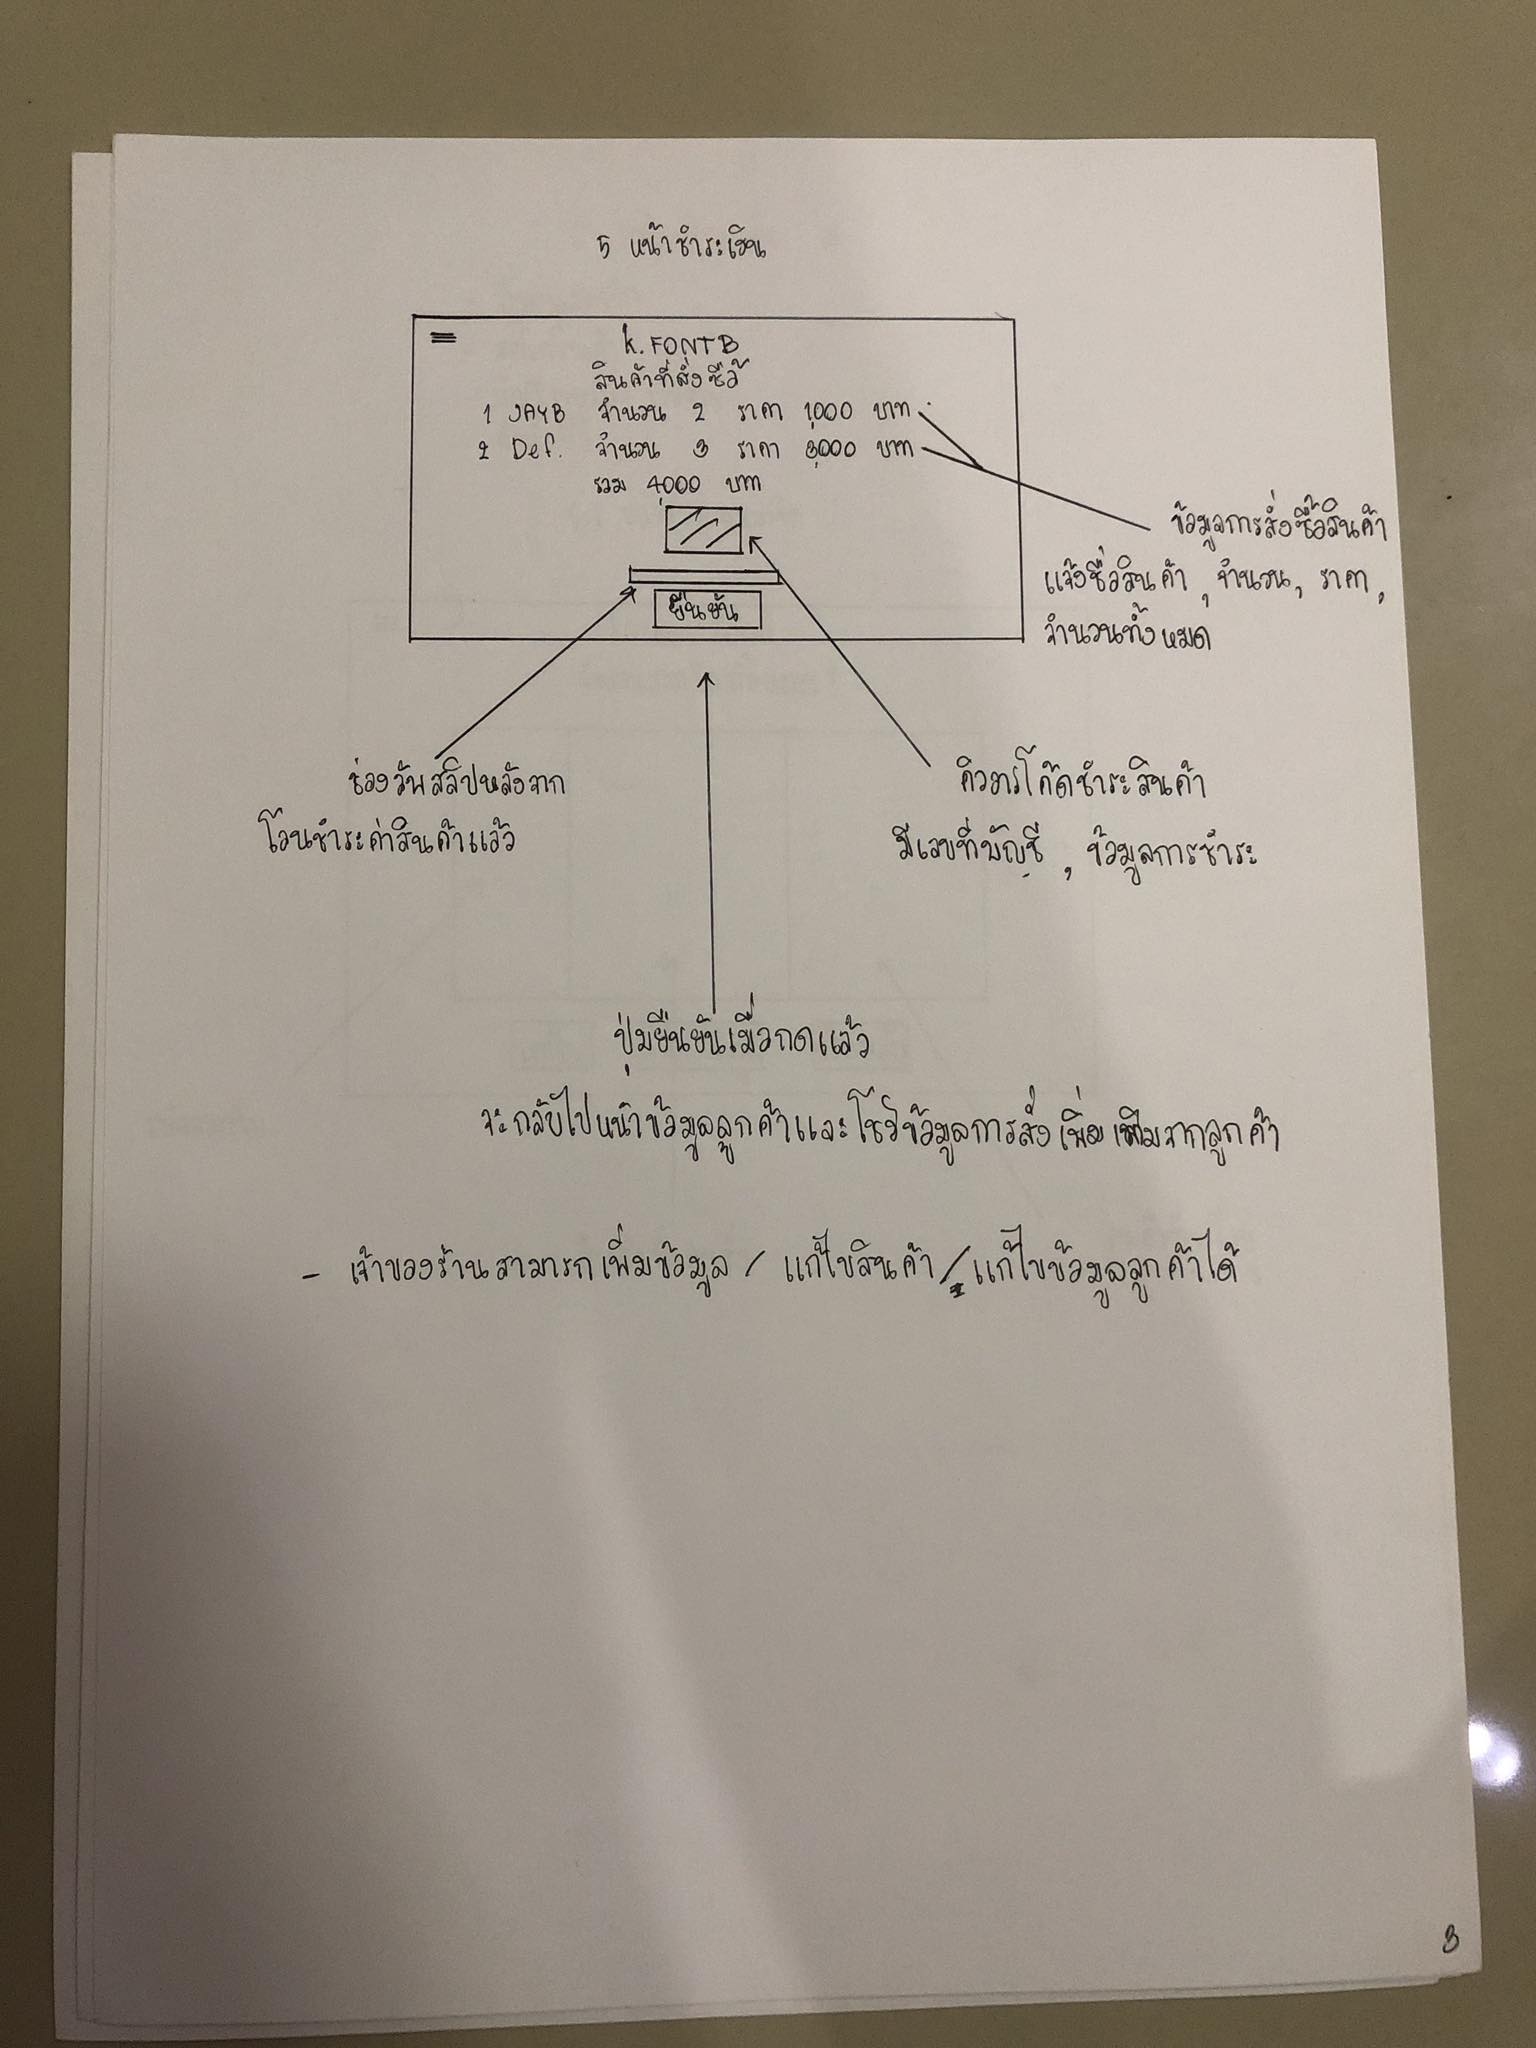 5 หน้าชำระเงิน
K.FONTB
สินค้าที่สั่งซื้อ
1 JAYB จำนวน 2 ราคา 1,000 บาท
2 Def. จำนวน 3 ราคา 3,000 บาท
รวม 4,000 บาท
ยืนยัน
ข้อมูลการสั่งซื้อสินค้า
แจ้งชื่อสินค้า, จำนวน, ราคา,
จำนวนทั้งหมด
ช่องอัพสลิปหลังจาก
โอนชำระค่าสินค้าแล้ว
คิวอาร์โค้ดชำระสินค้า
มีเลขที่บัญชี, ข้อมูลการชำระ
ปุ่มยืนยันเมื่อกดแล้ว
จะกลับไปหน้าข้อมูลลูกค้าและโชว์ข้อมูลการสั่งเพิ่มเติมจากลูกค้า
- เจ้าของร้านสามารถเพิ่มข้อมูล / แก้ไขสินค้า / แก้ไขข้อมูลลูกค้าได้
3